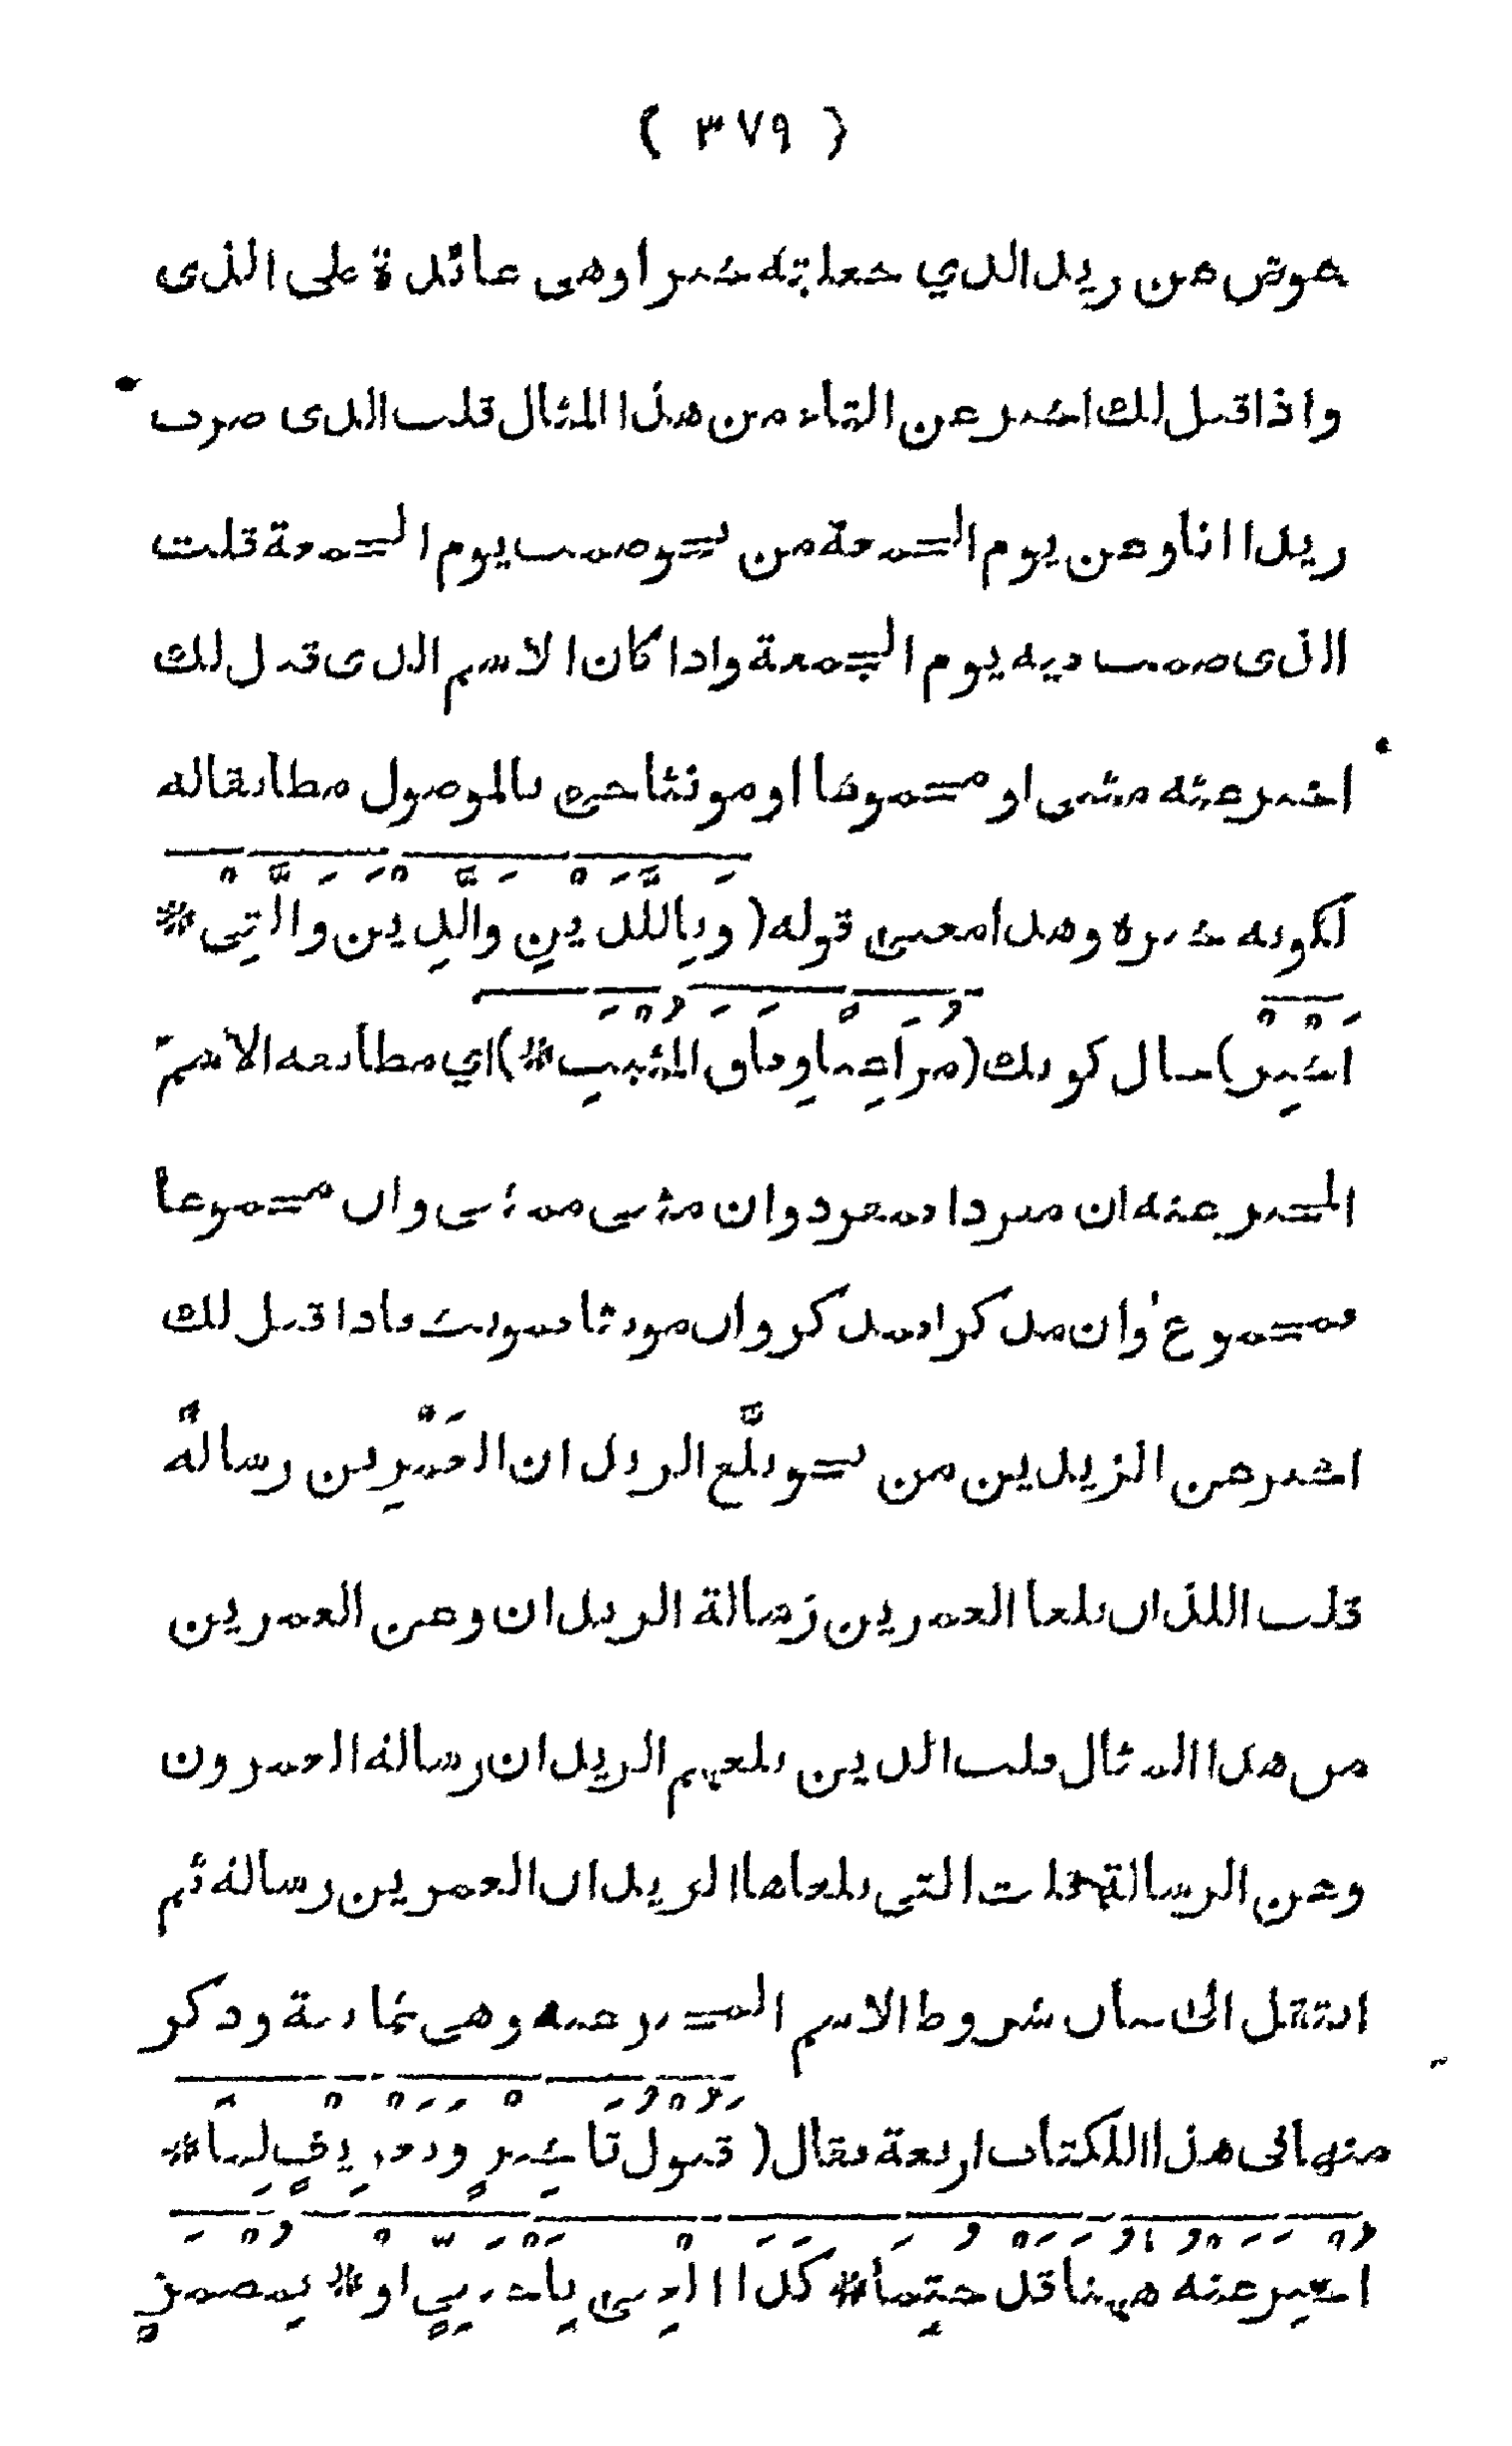 ( ٣٧٩ )
عوض عن زيد الذي جعلته خبرا وهى عائدة على الذى
واذا قيل لك اخبر عن التاء من هذا المثال قلت الذى ضرب
زيدا انا وعن يوم الجمعة من نحو صمت يوم الجمعة قلت
الذى صمت فيه يوم الجمعة واذا كان الاسم الذى قيل لك
اخبر عنه مثنى او مجموعا او مونثا جىء بالموصول مطابقا له
لكونه خبره وهذا معنى قوله ( وبِاللَّذَيْنِ والَّذِينَ والَّتِى *
اَخْبِرْ ) حال كونك ( مُراعِياً وِفاقَ المُثْبَتِ * ) اي مطابقه الاسم
المخبر عنه ان مفردا فمفرد وان مثنى فمثنى وان مجموعا
فمجموع وان مذكرا فمذكر وان مونثا فمونث فاذا قيل لك
اخبر عن الزيدين من نحو بلَّغ الزيدان العَمْرِين رسالةً
قلت اللذان بلغا العمرين رسالة الزيدان وعن العمرين
من هذا المثال قلت الذين بلغهم الزيدان رسالة العمرون
وعن الرسالة قلت التى بلغاها الزيدان العمرين رسالة ثم
انتقل الى بيان شروط الاسم المخبر عنه وهى ثمانية وذكر
منها فى هذا الكتاب اربعة فقال ( قَبُولُ تَأْخِيرٍ وتَعْرِيفٍ لِمَا *
اُخْبِرَ عَنْهُ هٰهُنا قَدْ حُتِمَا * كَذَا الْغِنَى بِاَجْنَبِيٍّ اَوْ * بِمُضْمَرٍ